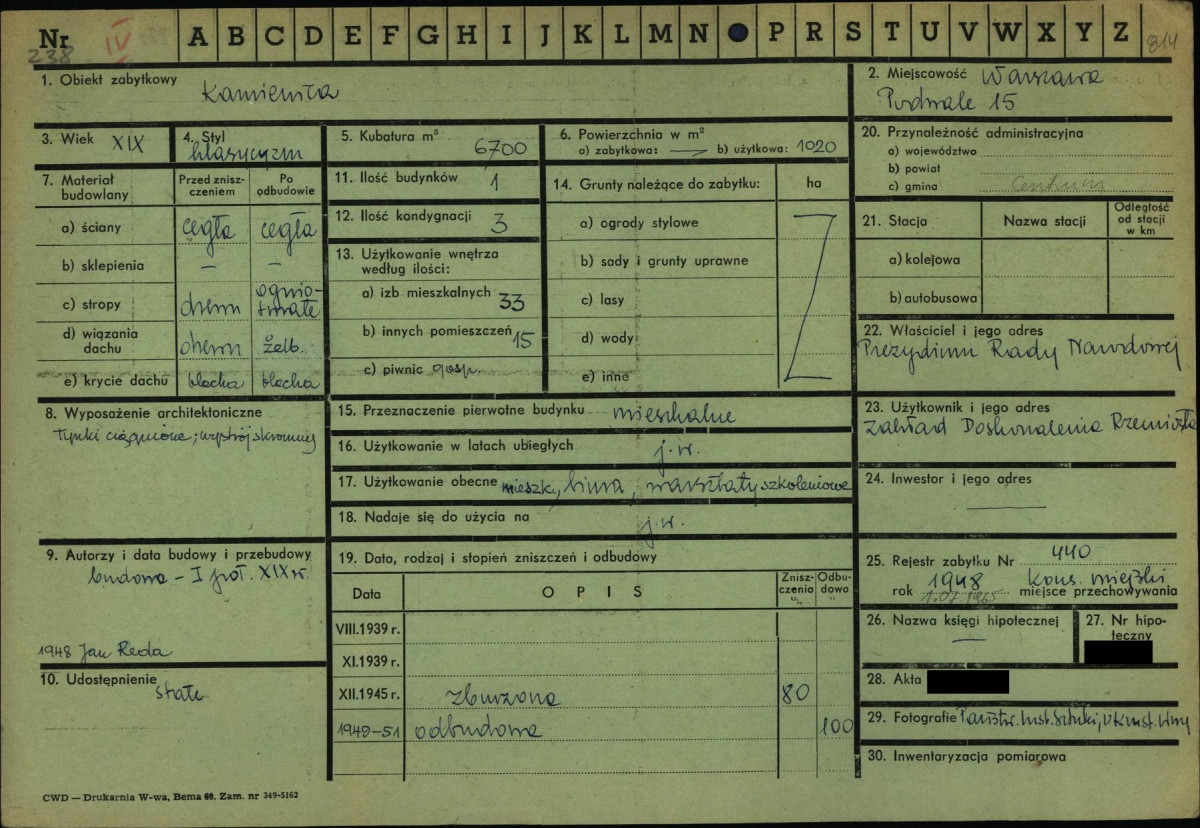 Nr IV A B C D E F G H I J K L M N P R S T U V W X Y Z
238 814
1. Obiekt zabytkowy Kamienica
2. Miejscowość Warszawa
Podwale 15
3. Wiek XIX
4. Styl klasycyzm
5. Kubatura m³ 6700
6. Powierzchnia w m²
a) zabytkowa: — b) użytkowa: 1020
7. Materiał budowlany
Przed zniszczeniem
Po odbudowie
a) ściany cegła cegła
b) sklepienia — —
c) stropy drewn ogniotrwałe
d) wiązania dachu drewn żelb.
e) krycie dachu blacha blacha
8. Wyposażenie architektoniczne
tynki ciągnione; wystrój skromny
9. Autorzy i data budowy i przebudowy
budowa – I poł. XIX w.
1948 Jan Reda
10. Udostępnienie
stałe
11. Ilość budynków 1
12. Ilość kondygnacji 3
13. Użytkowanie wnętrza
według ilości:
a) izb mieszkalnych 33
b) innych pomieszczeń 15
c) piwnic gosp.
14. Grunty należące do zabytku: ha
a) ogrody stylowe
b) sady i grunty uprawne
c) lasy
d) wody
e) inne
15. Przeznaczenie pierwotne budynku mieszkalne
16. Użytkowanie w latach ubiegłych j.w.
17. Użytkowanie obecne mieszk., biura, warsztaty szkoleniowe
18. Nadaje się do użycia na j.w.
19. Data, rodzaj i stopień zniszczeń i odbudowy
Data OPIS Zniszczenia "/" Odbudowa "/"
VIII.1939 r.
XI.1939 r.
XII.1945 r. zburzona 80
1949–51 odbudowa 100
20. Przynależność administracyjna
a) województwo
b) powiat
c) gmina Centrum
21. Stacja Nazwa stacji Odległość od stacji w km
a) kolejowa
b) autobusowa
22. Właściciel i jego adres
Prezydium Rady Narodowej
23. Użytkownik i jego adres
Zakład Doskonalenia Rzemiosła
24. Inwestor i jego adres
—
25. Rejestr zabytku Nr 440
rok 1948 kons. miejski
1.07.1965 miejsce przechowywania
26. Nazwa księgi hipotecznej
—
27. Nr hipoteczny
28. Akta
29. Fotografie Państw. Inst. Sztuki,
30. Inwentaryzacja pomiarowa
CWD — Drukarnia W-wa, Bema 60. Zam. nr 349-5162